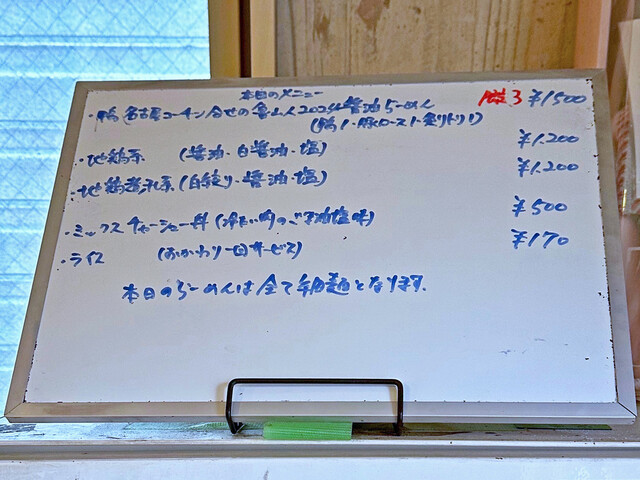 本日のメニュー
・鴨 名古屋コーチン合せの 2024醤油らーめん 限3 ¥1500
(鴨1・豚ロースト・炙りトリ1)
・地鶏系 (醤油・白醤油・塩) ¥1.200
・地鶏煮干系(白絞り・醤油・塩) ¥1.200
・ミックスチャーシュー丼(冷たい肉のごま油塩味) ¥500
・ライス (おかわり一回サービス) ¥170
本日のらーめんは全て手細麺となります.